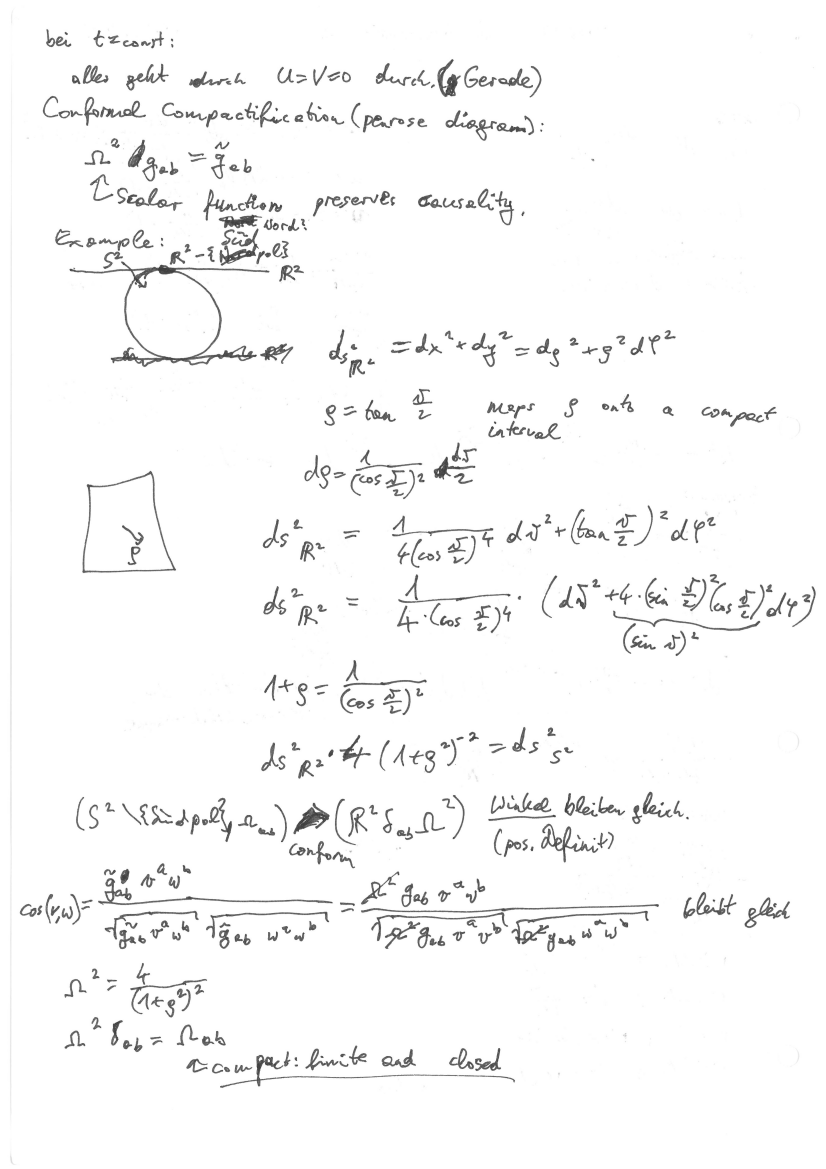 bei t=const:
alles geht durch U=V=0 durch. (Gerade)
Conformal Compactification (penrose diagram):
Ω² g_ab = g̃_ab
↑ Scalar function preserves causality.
Nord?
Example: Süd
S² ℝ²-{pol} ℝ²
N
ds²_ℝ² = dx² + dy² = dρ² + ρ² dφ²
ρ = tan ϑ/2 maps ρ onto a compact
interval
dρ = 1/(cos ϑ/2)² dϑ/2
ds²_ℝ² = 1/(4(cos ϑ/2)⁴) dϑ² + (tan ϑ/2)² dφ²
ρ
ds²_ℝ² = 1/(4·(cos ϑ/2)⁴) · (dϑ² + 4·(sin ϑ/2)² (cos ϑ/2)² dφ²)
(sin ϑ)²
1+ρ = 1/(cos ϑ/2)²
ds²_ℝ² · 4 (1+ρ²)⁻² = ds²_S²
(S² \ {Südpol}, Ω_ab) → (ℝ² δ_ab Ω²) Winkel bleiben gleich.
conform (pos. definit)
cos(v,w) = g̃_ab v^a w^b / (√(g̃_ab v^a w^b) √(g̃_ab w^a w^b)) = Ω² g_ab v^a v^b / (√(Ω² g_ab v^a v^b) √(Ω² g_ab w^a w^b)) bleibt gleich
Ω² = 4/(1+ρ²)²
Ω² δ_ab = Ω_ab
↑ compact: finite and closed